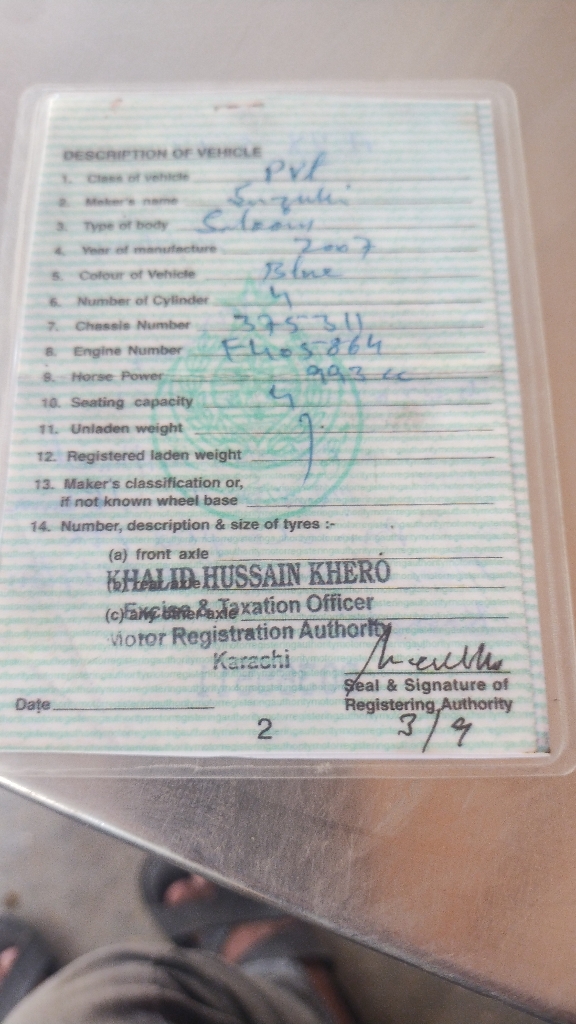 DESCRIPTION OF VEHICLE
1. Class of vehicle Pvt
2. Maker's name Suzuki
3. Type of body Saloon
4. Year of manufacture 2007
5. Colour of Vehicle Blue
6. Number of Cylinder 4
7. Chassis Number 375311
8. Engine Number F405864
9. Horse Power 993 cc
10. Seating capacity 4
11. Unladen weight
12. Registered laden weight
13. Maker's classification or,
if not known wheel base
14. Number, description & size of tyres :-
(a) front axle
KHALID HUSSAIN KHERO
(b) rear axle
Excise & Taxation Officer
(c) any other axle
Motor Registration Authority
Karachi
Seal & Signature of
Date Registering Authority
2
3/9